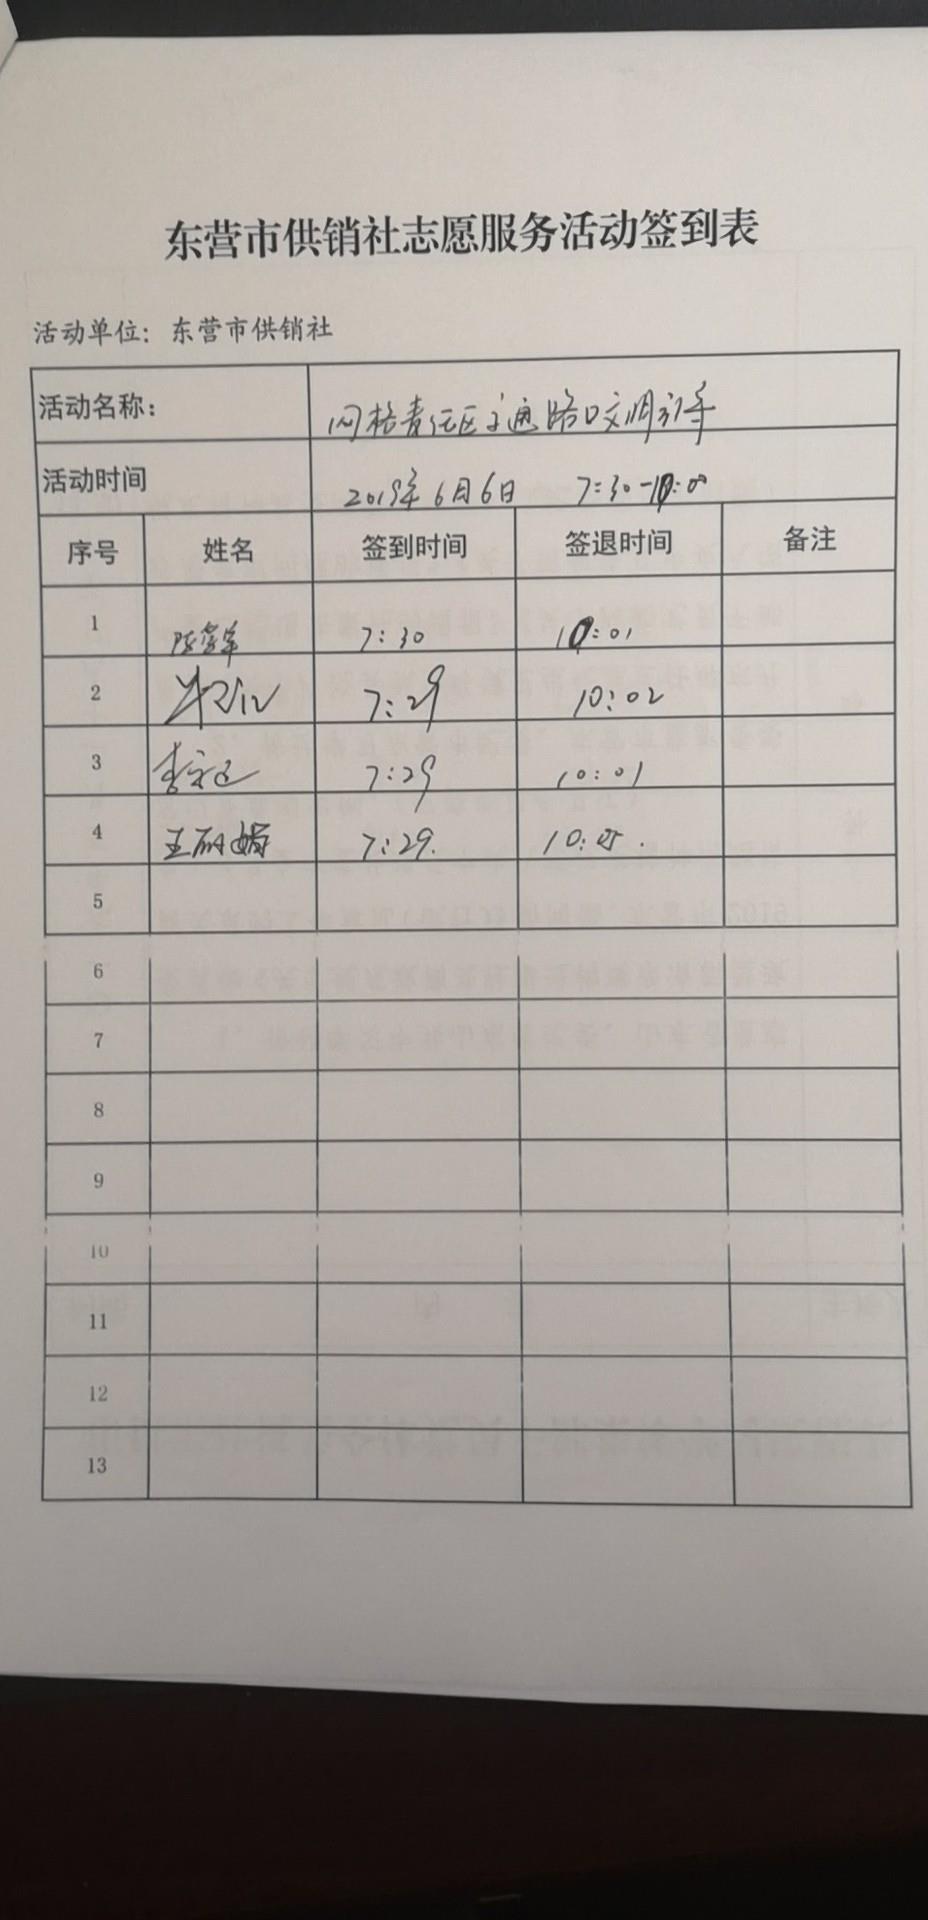 东营市供销社志愿服务活动签到表
活动单位：东营市供销社
活动名称： 网格责任区交通路口文明引导
活动时间 2019年6月6日 7:30-10:00
序号 姓名 签到时间 签退时间 备注
1 7:30 10:01
2 7:29 10:02
3 7:29 10:01
4 王丽娟 7:29. 10:05.
5
6
7
8
9
10
11
12
13